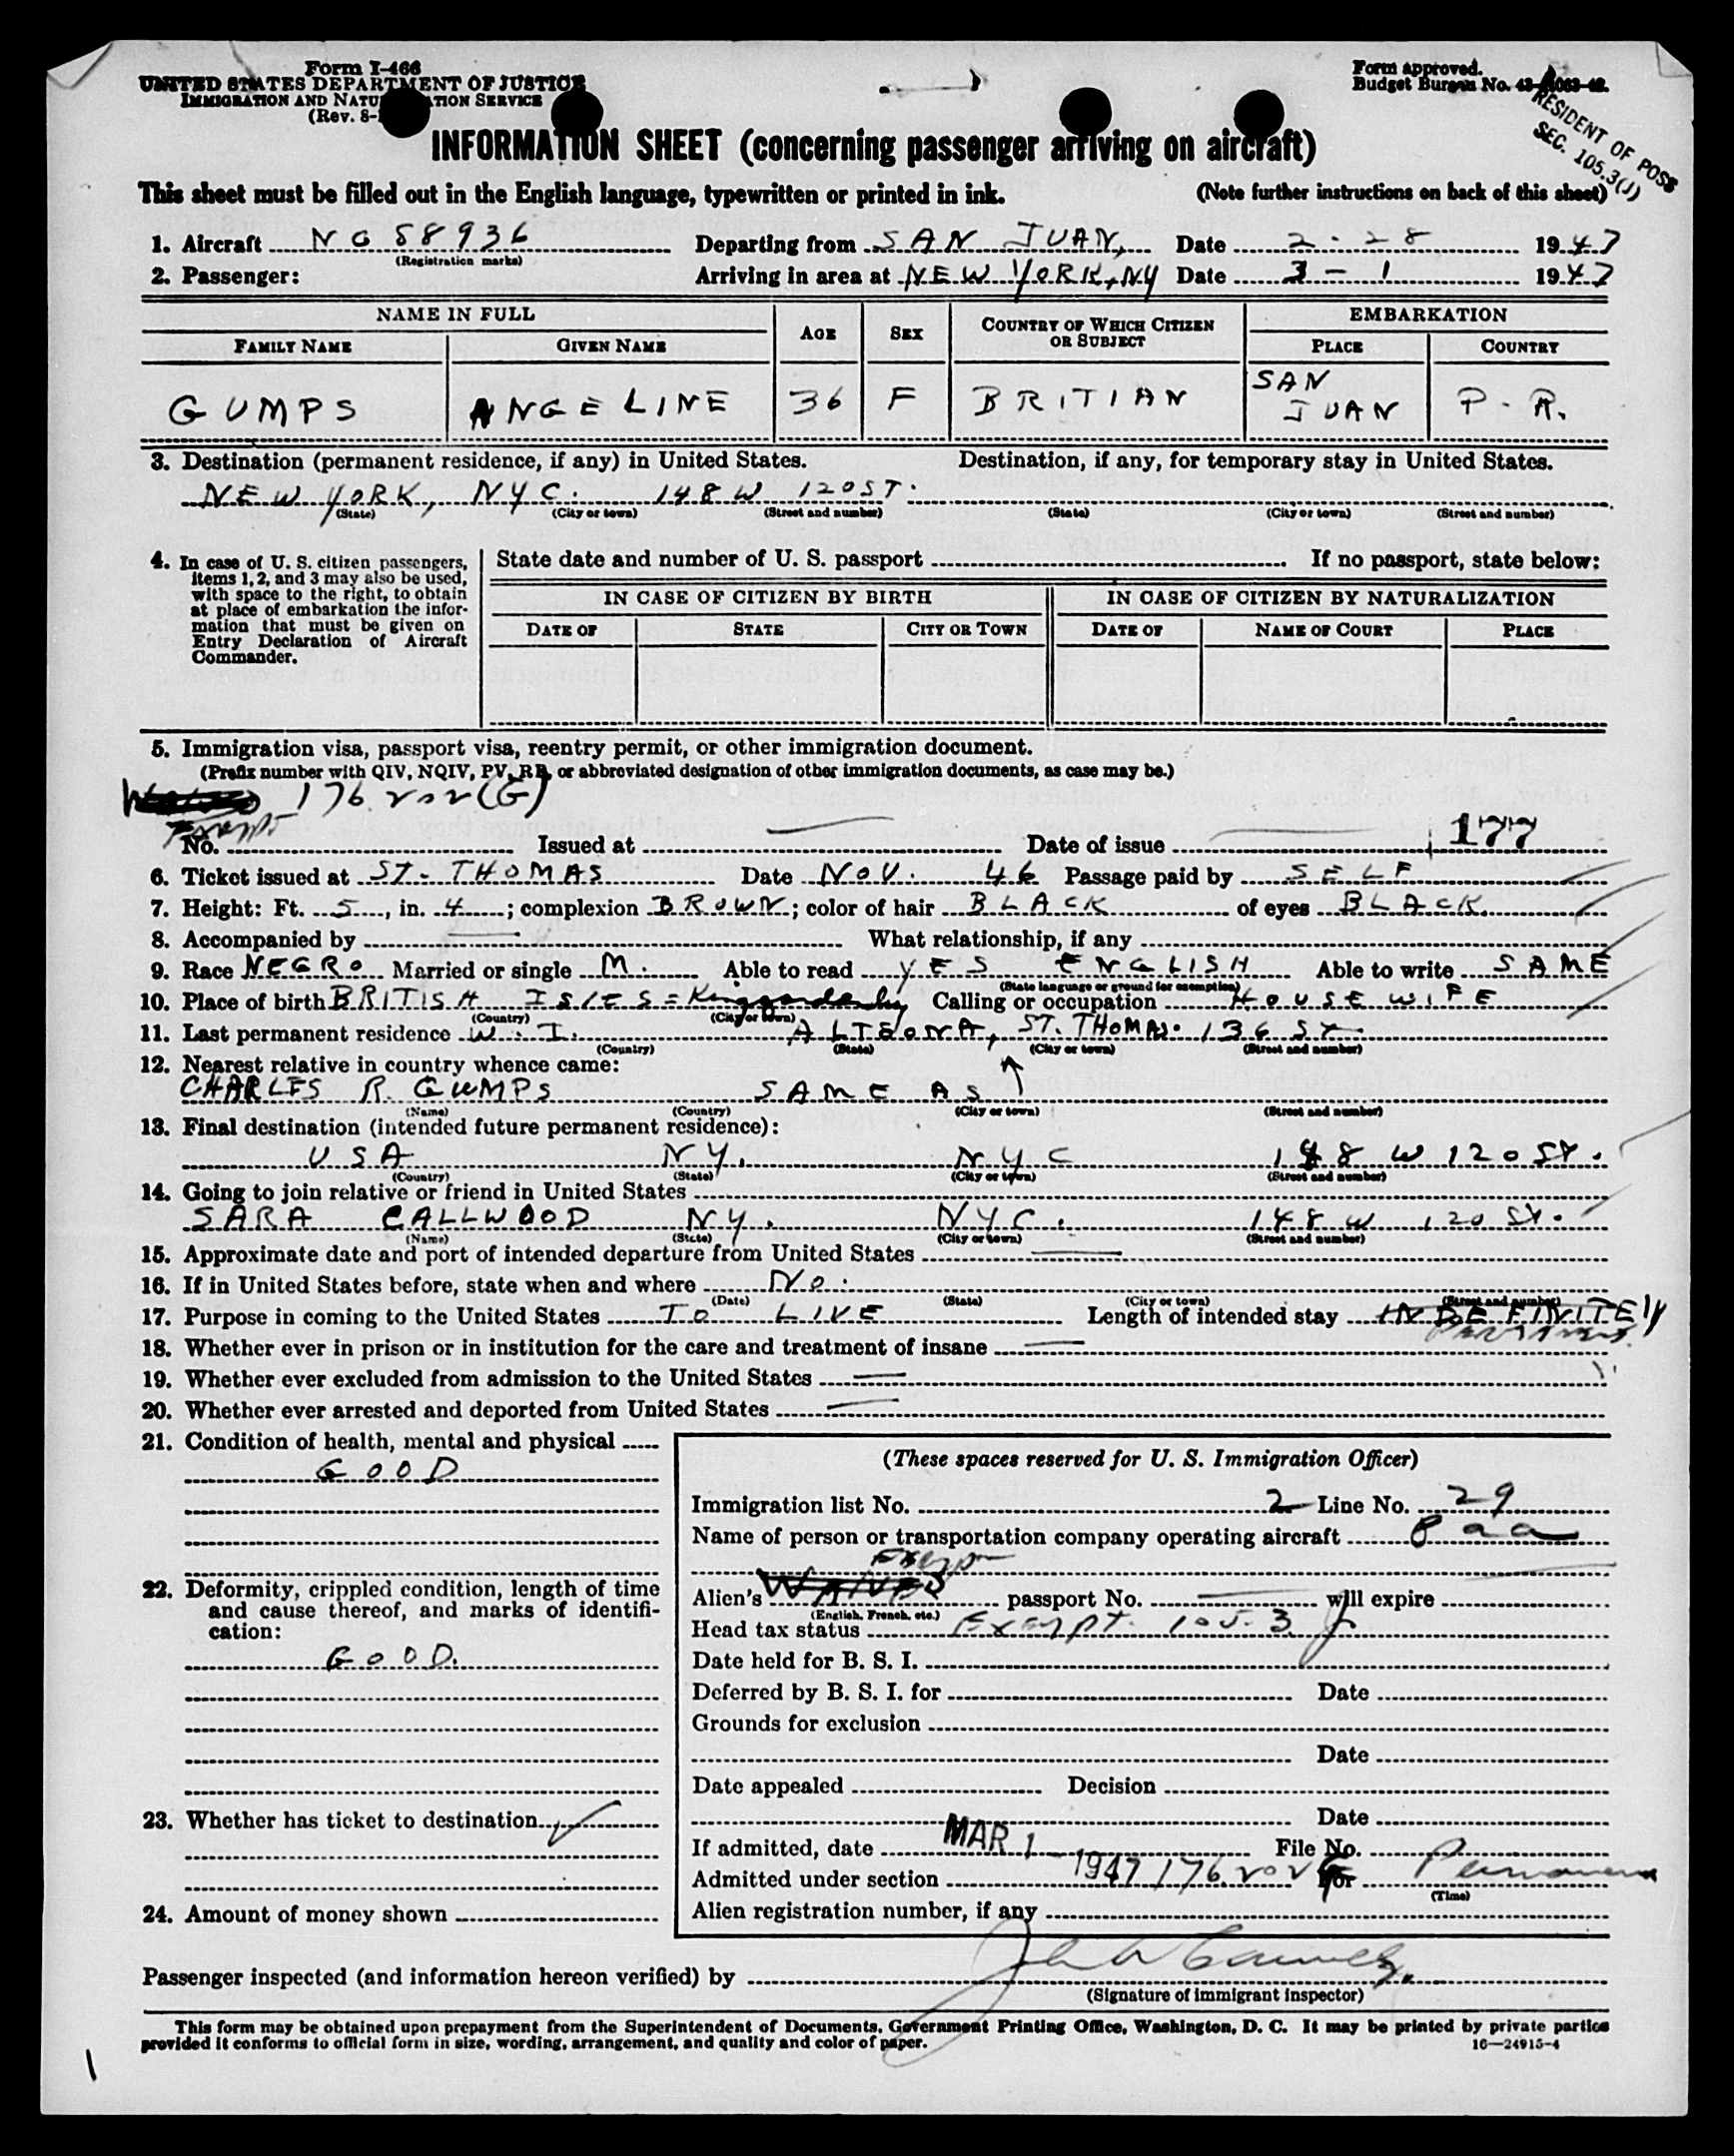 Form I-466
UNITED STATES DEPARTMENT OF JUSTICE
IMMIGRATION AND NATURALIZATION SERVICE
(Rev. 8-
Form approved.
Budget Bureau No.
RESIDENT OF POSS
SEC. 105.3(J)
INFORMATION SHEET (concerning passenger arriving on aircraft)
This sheet must be filled out in the English language, typewritten or printed in ink. (Note further instructions on back of this sheet)
1. Aircraft NC 58936 Departing from SAN JUAN, Date 2-28 1947
(Registration marks)
2. Passenger: Arriving in area at NEW YORK, NY Date 3-1 1947
NAME IN FULL AGE SEX COUNTRY OF WHICH CITIZEN OR SUBJECT EMBARKATION
FAMILY NAME GIVEN NAME PLACE COUNTRY
GUMPS ANGELINE 36 F BRITIAN SAN JUAN P.R.
3. Destination (permanent residence, if any) in United States. Destination, if any, for temporary stay in United States.
NEW YORK, NYC. 148 W 120 ST.
(State) (City or town) (Street and number) (State) (City or town) (Street and number)
4. In case of U. S. citizen passengers, items 1, 2, and 3 may also be used, with space to the right, to obtain at place of embarkation the information that must be given on Entry Declaration of Aircraft Commander.
State date and number of U. S. passport If no passport, state below:
IN CASE OF CITIZEN BY BIRTH IN CASE OF CITIZEN BY NATURALIZATION
DATE OF STATE CITY OR TOWN DATE OF NAME OF COURT PLACE
5. Immigration visa, passport visa, reentry permit, or other immigration document.
(Prefix number with QIV, NQIV, PV, RP, or abbreviated designation of other immigration documents, as case may be.)
176.202(G)
Exempt
No. Issued at Date of issue 177
6. Ticket issued at ST. THOMAS Date NOV. 46 Passage paid by SELF
7. Height: Ft. 5, in. 4; complexion BROWN; color of hair BLACK of eyes BLACK
8. Accompanied by What relationship, if any
9. Race NEGRO Married or single M. Able to read YES ENGLISH Able to write SAME
(State language or ground for exemption)
10. Place of birth BRITISH ISLES = Calling or occupation HOUSE WIFE
(Country) (City or town)
11. Last permanent residence W. I. ALTEONA, ST. THOMAS. 136 ST
(Country) (State) (City or town) (Street and number)
12. Nearest relative in country whence came:
CHARLES R. GUMPS SAME AS ↑
(Name) (Country) (City or town) (Street and number)
13. Final destination (intended future permanent residence):
USA NY. NYC 148 W 120 ST.
(Country) (State) (City or town) (Street and number)
14. Going to join relative or friend in United States
SARA CALLWOOD NY. NYC. 148 W 120 ST.
(Name) (State) (City or town) (Street and number)
15. Approximate date and port of intended departure from United States
16. If in United States before, state when and where No.
(Date) (State) (City or town) (Street and number)
17. Purpose in coming to the United States TO LIVE Length of intended stay INDEFINITELY
18. Whether ever in prison or in institution for the care and treatment of insane
19. Whether ever excluded from admission to the United States
20. Whether ever arrested and deported from United States
21. Condition of health, mental and physical
GOOD
22. Deformity, crippled condition, length of time and cause thereof, and marks of identification:
GOOD.
23. Whether has ticket to destination
24. Amount of money shown
(These spaces reserved for U. S. Immigration Officer)
Immigration list No. 2 Line No. 29
Name of person or transportation company operating aircraft Paa
Exempt
Alien's passport No. will expire
(English, French, etc.)
Head tax status Exempt. 105.3 j
Date held for B. S. I.
Deferred by B. S. I. for Date
Grounds for exclusion
Date
Date appealed Decision
Date
If admitted, date MAR 1 - 1947 File No.
Admitted under section 176.202 G For Permanent
(Time)
Alien registration number, if any
Passenger inspected (and information hereon verified) by
(Signature of immigrant inspector)
This form may be obtained upon prepayment from the Superintendent of Documents, Government Printing Office, Washington, D. C. It may be printed by private parties
provided it conforms to official form in size, wording, arrangement, and quality and color of paper. 16—24915-4